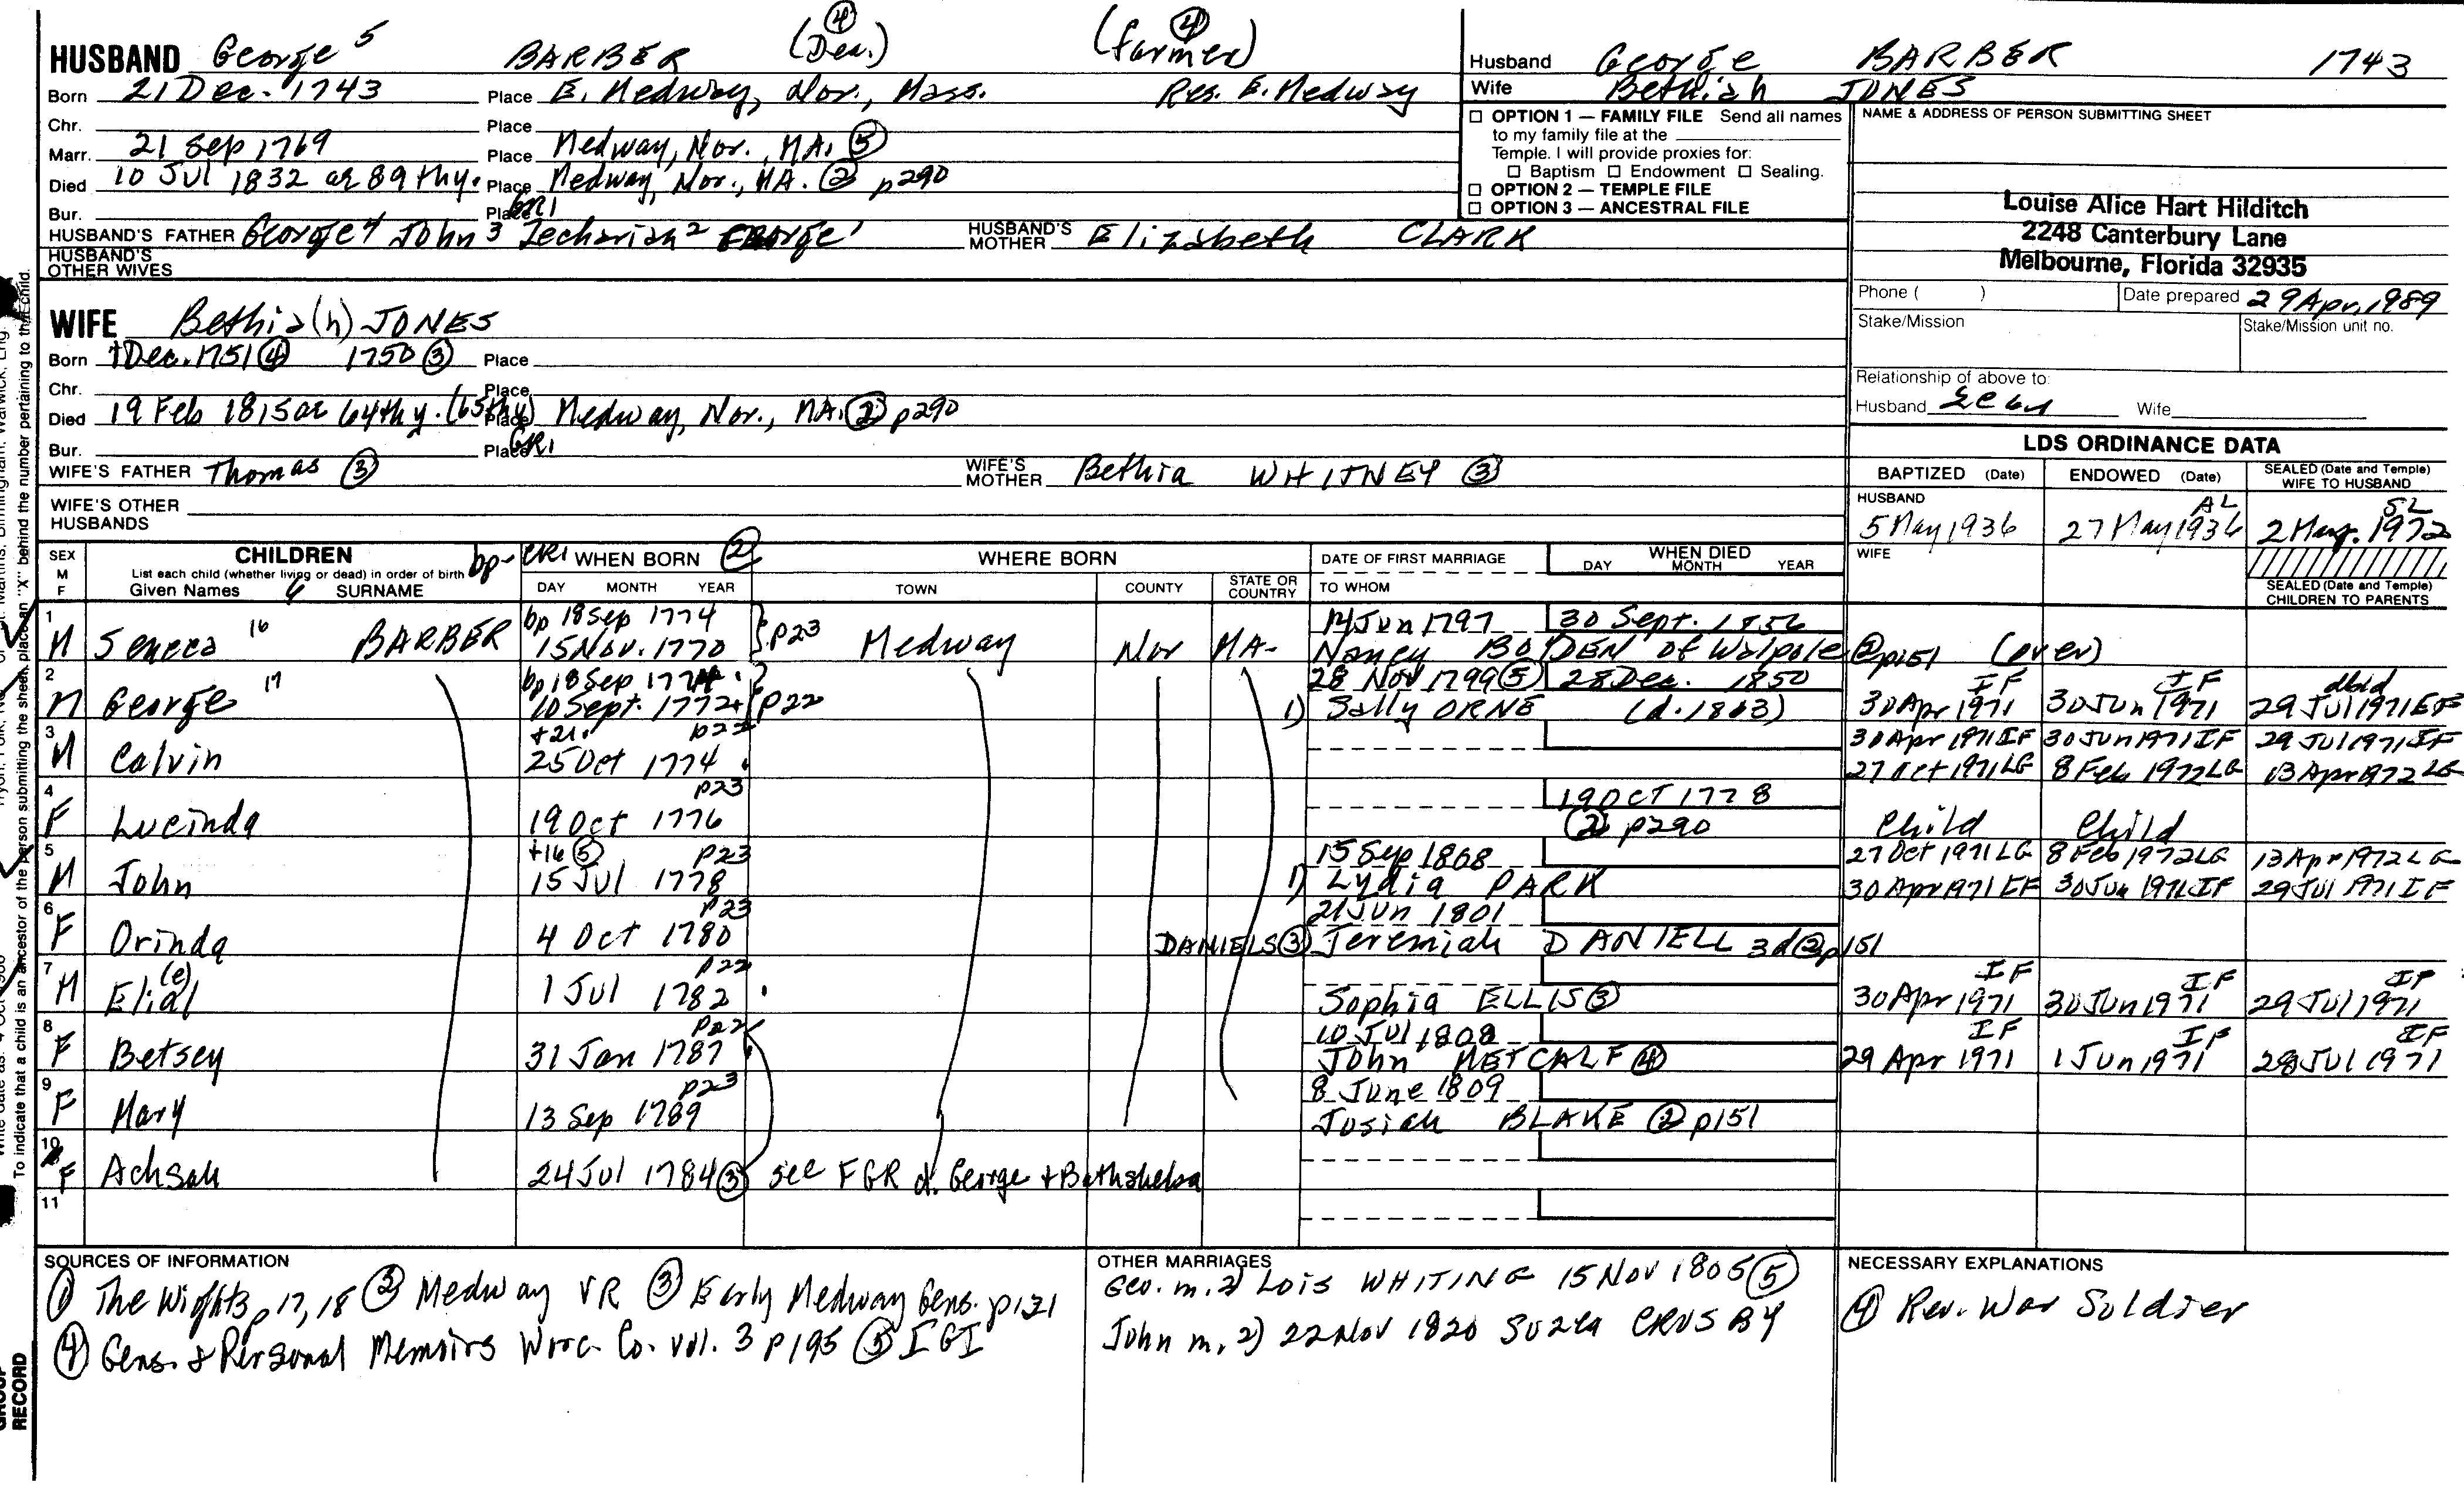 HUSBAND George 5 BARBER (Dea.) ④ (farmer) ④
Born 21 Dec. 1743 Place E. Medway, Nor., Mass. Res. E. Medway
Chr. Place
Marr. 21 Sep 1769 Place Medway, Nor., MA. ⑤
Died 10 Jul 1832 ae 89thy. Place Medway, Nor., MA. ② p290
Bur. Place GR1
HUSBAND'S FATHER George 4 John 3 Zechariah 2 George 1 HUSBAND'S MOTHER Elizabeth CLARK
HUSBAND'S OTHER WIVES
WIFE Bethia(h) JONES
Born Dec. 1751 ④ 1750 ③ Place
Chr. Place
Died 19 Feb 1815 ae 64thy. (65thy) Place Medway, Nor., MA. ② p290
Bur. Place GR1
WIFE'S FATHER Thomas ③ WIFE'S MOTHER Bethia WHITNEY ③
WIFE'S OTHER HUSBANDS
Husband George BARBER 1743
Wife Bethiah JONES
☐ OPTION 1 — FAMILY FILE Send all names
to my family file at the
Temple. I will provide proxies for:
☐ Baptism ☐ Endowment ☐ Sealing.
☐ OPTION 2 — TEMPLE FILE
☐ OPTION 3 — ANCESTRAL FILE
NAME & ADDRESS OF PERSON SUBMITTING SHEET
Louise Alice Hart Hilditch
2248 Canterbury Lane
Melbourne, Florida 32935
Phone ( ) Date prepared 29 Apr, 1989
Stake/Mission Stake/Mission unit no.
Relationship of above to:
Husband Wife
LDS ORDINANCE DATA
BAPTIZED (Date) ENDOWED (Date) SEALED (Date and Temple) WIFE TO HUSBAND
HUSBAND AL SL
5 May 1936 27 May 1936 2 1972
WIFE
SEALED (Date and Temple) CHILDREN TO PARENTS
SEX M F CHILDREN bp- CR1 WHEN BORN ② WHERE BORN DATE OF FIRST MARRIAGE WHEN DIED
List each child (whether living or dead) in order of birth DAY MONTH YEAR
Given Names 6 SURNAME DAY MONTH YEAR TOWN COUNTY STATE OR COUNTRY TO WHOM
1 bp 18 Sep 1774 1797 30 Sept. 1856
M Seneca 16 BARBER 15 Nov. 1770 p23 Medway Nor MA- Nancy BOYDEN of Walpole ② p151 (over)
2 bp 18 Sep 1774 28 Nov 1799 ⑤ 28 Dec. 1850 IF IF dbld
M George 17 10 Sept. 1772 p22 1) Sally ORNE (d. 1803) 30 Apr 1971 30 Jun 1971 29 Jul 1971 IF
3 +21. p22 30 Apr 1971 IF 30 Jun 1971 IF 29 Jul 1971 IF
M Calvin 25 Oct 1774 27 Oct 1971 LG 8 Feb 1972 LG 13 Apr 1972 LG
4 p23 19 OCT 1778
F Lucinda 19 Oct 1776 ② p290 Child Child
5 +16 ⑤ p23 15 Sep 1808 27 Oct 1971 LG 8 Feb 1972 LG 13 Apr 1972 LG
M John 15 Jul 1778 1) Lydia PARK 30 Apr 1971 IF 30 Jun 1971 IF 29 Jul 1971 IF
6 p23 21 Jun 1801
F Orinda 4 Oct 1780 DANIELS ③ Jeremiah DANIELL 3d ② p151
7 (e) p22 IF IF IF
M Elial 1 Jul 1782 Sophia ELLIS ③ 30 Apr 1971 30 Jun 1971 29 Jul 1971
8 p22 10 Jul 1808 IF IF IF
F Betsey 31 Jan 1787 John METCALF ④ 29 Apr 1971 1 Jun 1971 28 Jul 1971
9 p23 8 June 1809
F Mary 13 Sep 1789 Josiah BLAKE ② p151
10
F Achsah 24 Jul 1784 ③ see FGR d. George + Bathsheba
11
SOURCES OF INFORMATION
① The Wights p 17, 18 ② Medway VR ③ Early Medway Gens. p131
④ Gens. & Personal Memoirs Worc. Co. vol. 3 p195 ⑤ IGI
OTHER MARRIAGES
Geo. m. 2) Lois WHITING 15 Nov 1805 ⑤
John m. 2) 22 Nov 1820 CRUSBY
NECESSARY EXPLANATIONS
④ Rev. War Soldier
To indicate that a child is an ancestor of the person submitting the sheet, place an "X" behind the number pertaining to that child.
RECORD